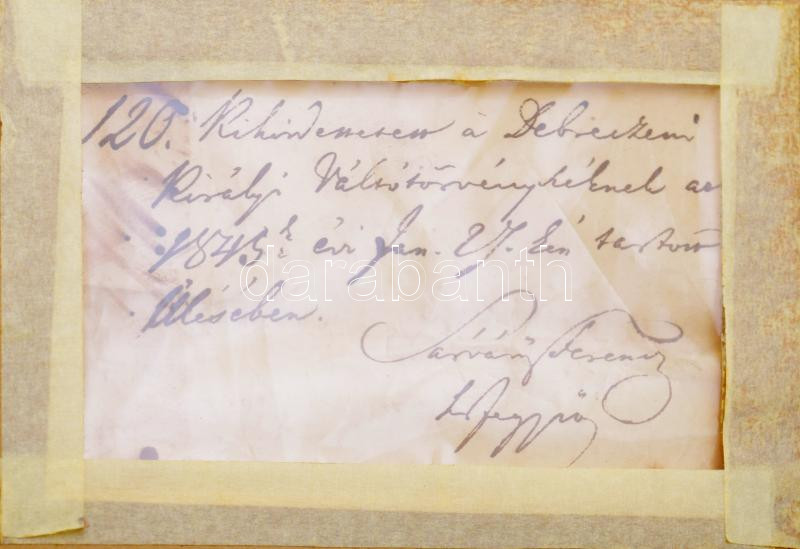 120. Kihirdettetett a Debreczeni
Királyi Váltótörvényszéknek az
1845k évi Jan. 27-kén tartott
Ülésében.
Sárváry Ferencz
h. jegyző
darabanth